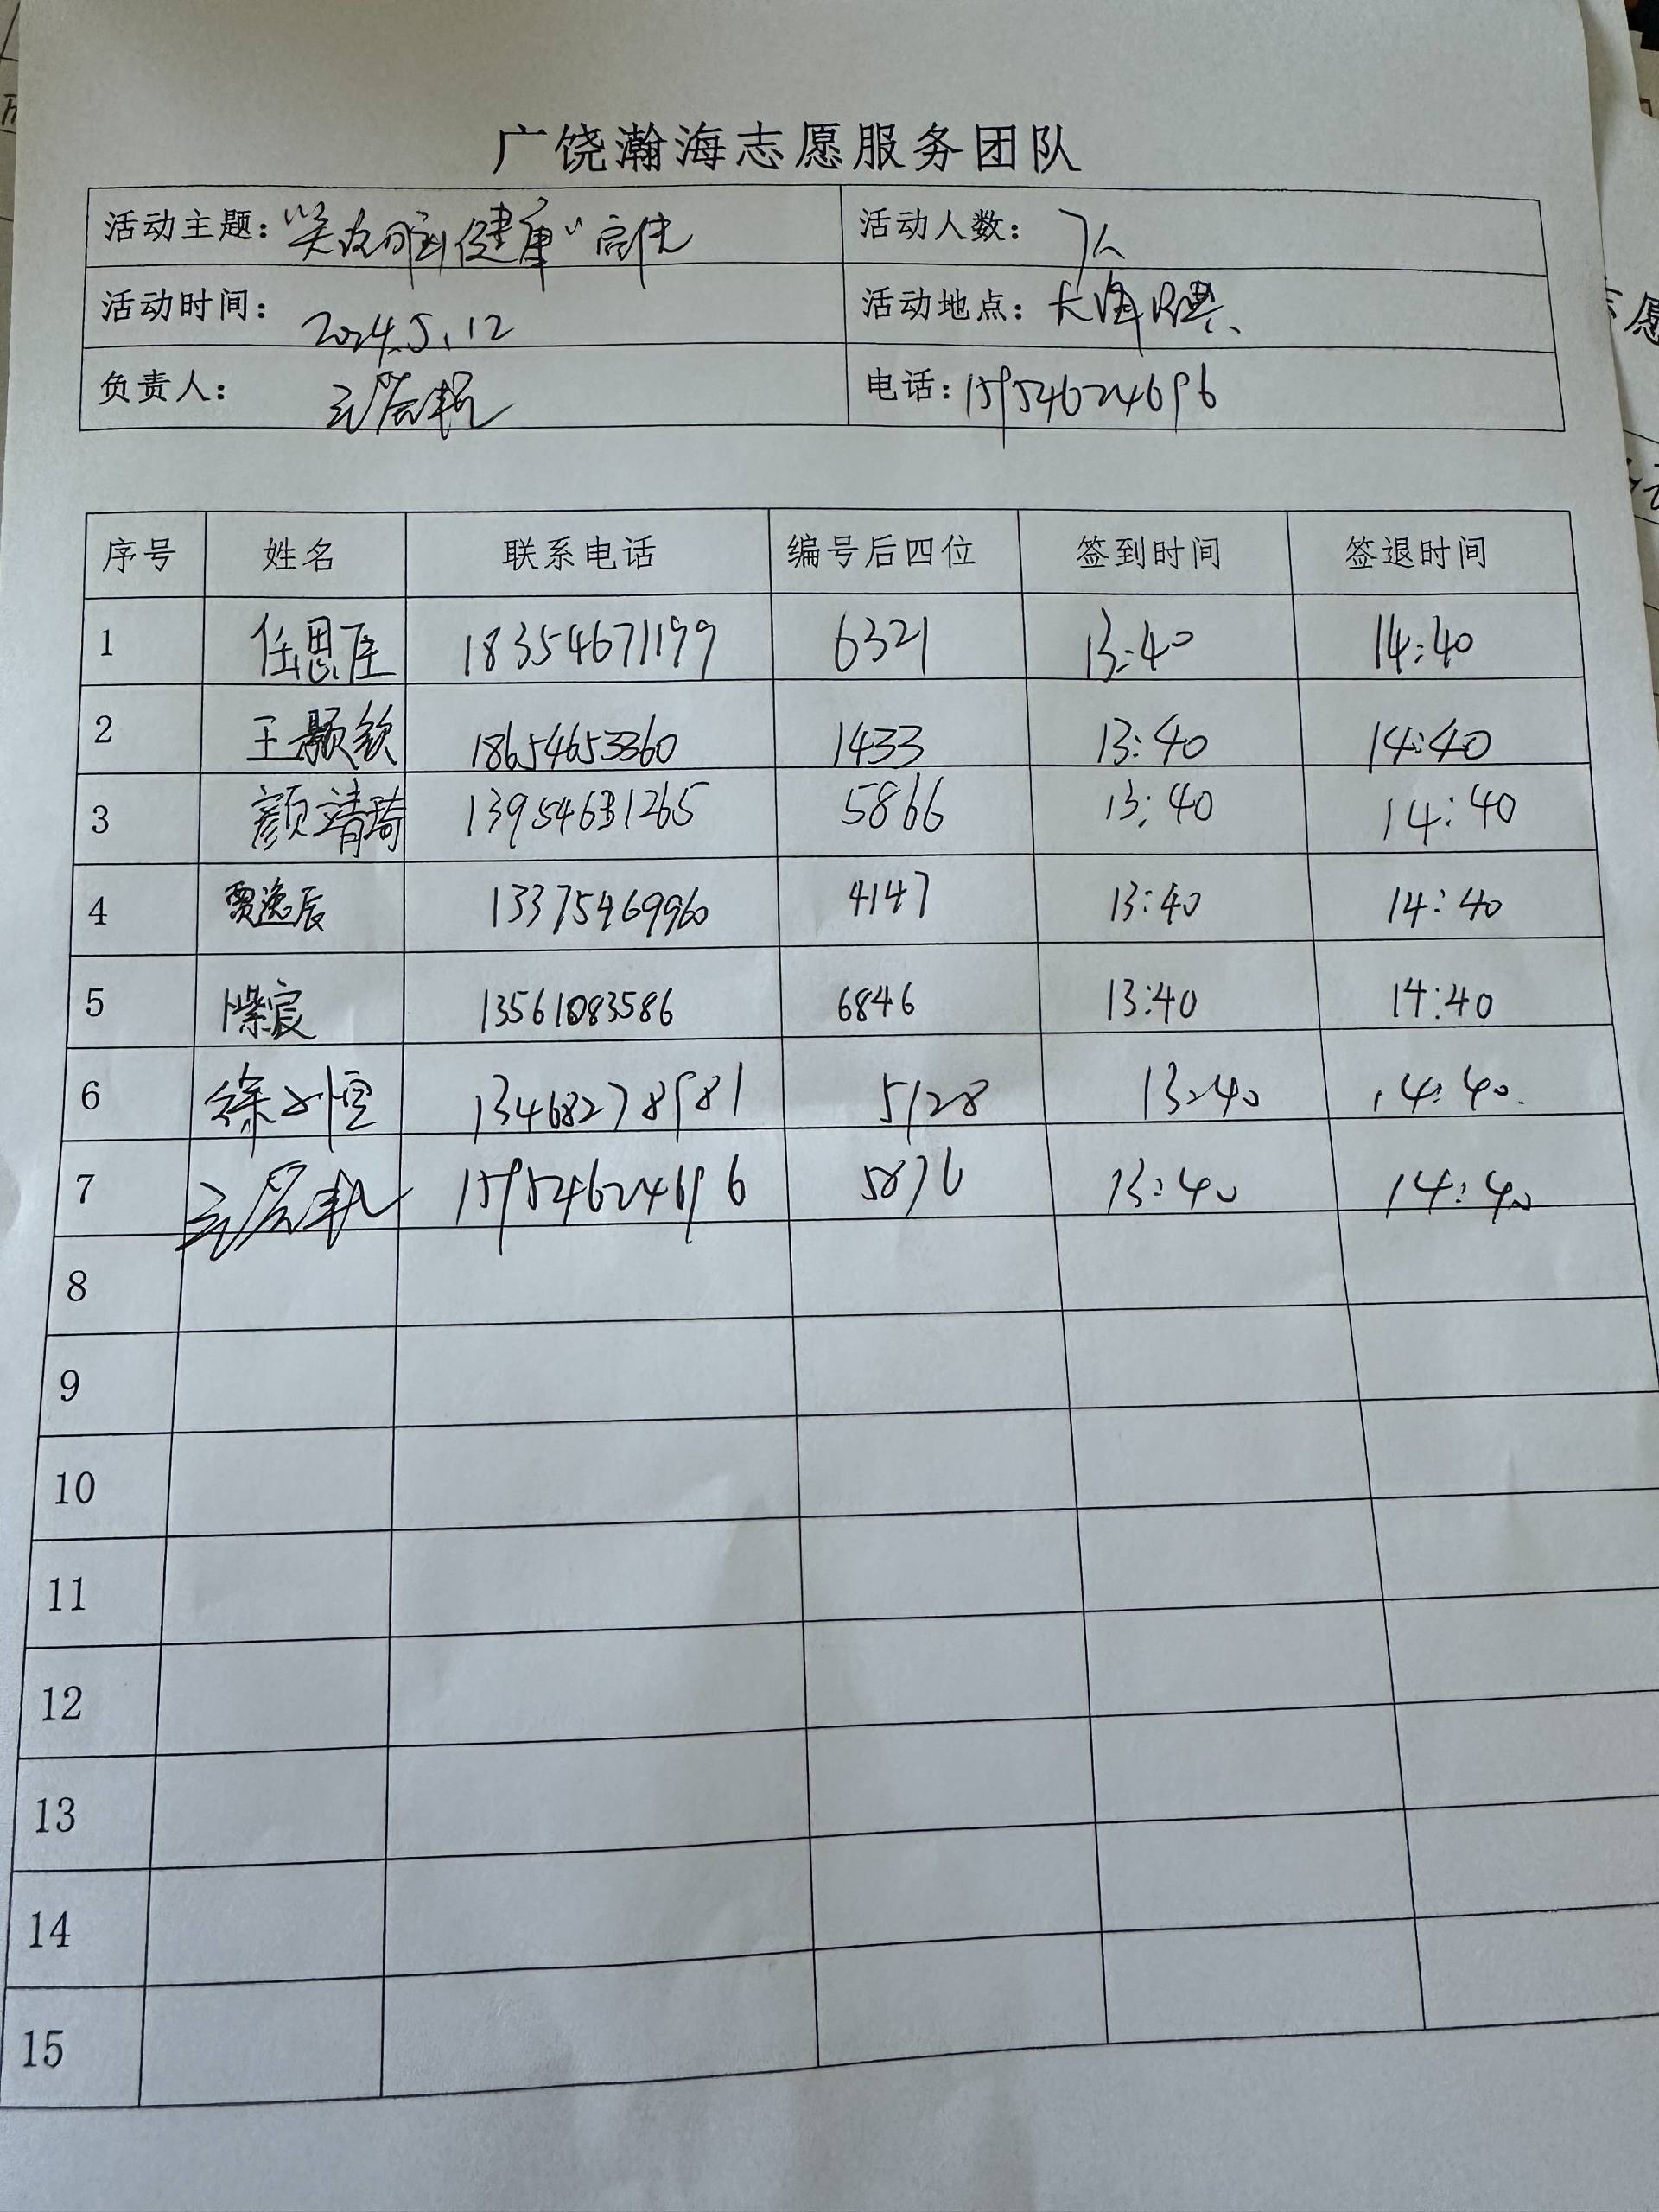 广饶瀚海志愿服务团队
活动主题：“关注 健康”宣传 活动人数： 7人
活动时间：2024.5.12 活动地点：大海
负责人： 电话：15954624696
序号 姓名 联系电话 编号后四位 签到时间 签退时间
1 任恩 18354671199 6321 13:40 14:40
2 王颢钦 18654653360 1433 13:40 14:40
3 颜靖琦 13954631265 5866 13:40 14:40
4 贾逸辰 13375469960 4147 13:40 14:40
5 宸 13561083586 6846 13:40 14:40
6 徐 恒 13468278981 5128 13:40 14:40
7 15954624696 5876 13:40 14:40
8
9
10
11
12
13
14
15